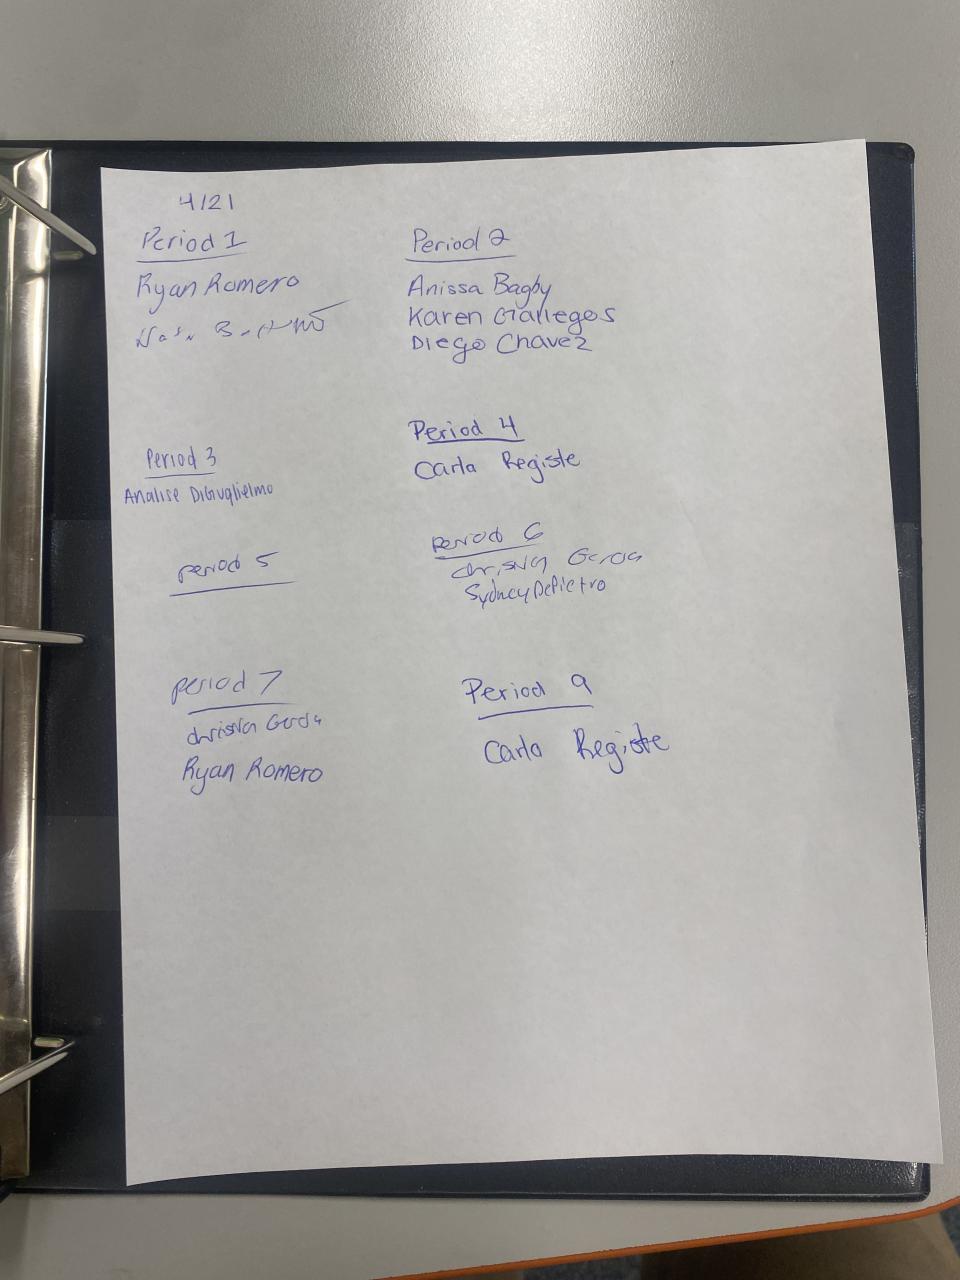 4/21
Period 1
Ryan Romero
Period 2
Anissa Bagby
Karen Gallegos
Diego Chavez
Period 3
Analise DiGuglielmo
Period 4
Carla Registe
Period 5
Period 6
Sydney DePietro
Period 7
Ryan Romero
Period 9
Carla Registe